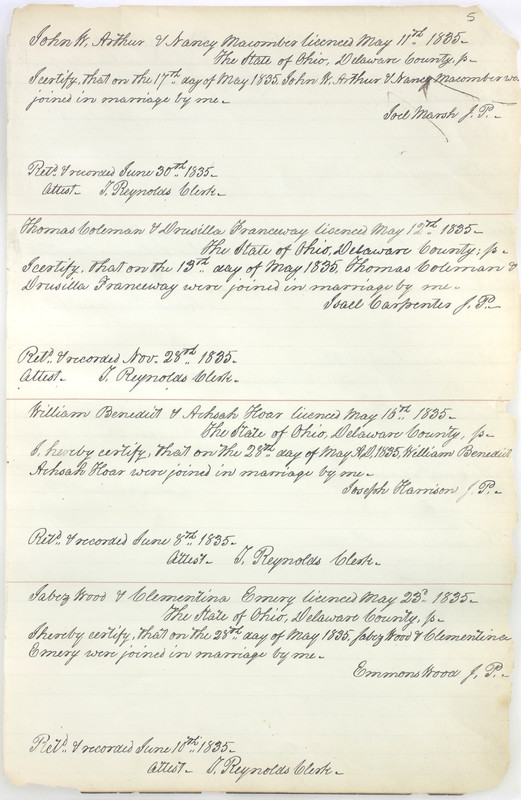 5
John W. Arthur & Nancy Macomber licenced May 11th 1835-
The State of Ohio, Delaware County, ss-
I certify, that on the 17th day of May 1835, John W. Arthur & Nancy Macomber wa
joined in marriage by me-
Joel Marsh J. P.-
Retd. & recorded June 30th 1835-
Attest- T. Reynolds Clerk-
Thomas Coleman & Drusilla Franceway licenced May 12th 1835-
The State of Ohio, Delaware County; ss-
I certify, that on the 13th day of May 1835, Thomas Coleman &
Drusilla Franceway were joined in marriage by me-
Isaell Carpenter J. P.-
Retd. & recorded Nov. 28th 1835-
Attest- T. Reynolds Clerk-
William Benedict & Achsah Hoar licenced May 15th 1835-
The State of Ohio, Delaware County, ss-
I, hereby certify, that on the 28th day of May A.D. 1835, William Benedict
Achsah Hoar were joined in marriage by me-
Joseph Harrison J. P.-
Retd. & recorded June 8th 1835-
Attest- T. Reynolds Clerk-
Jabez Wood & Clementina Emery licenced May 23d 1835-
The State of Ohio, Delaware County, ss-
I hereby certify, that on the 28th day of May 1835, Jabez Wood & Clementina
Emery were joined in marriage by me-
Emmons Wood J. P.-
Retd. & recorded June 10th 1835-
Attest- T. Reynolds Clerk-